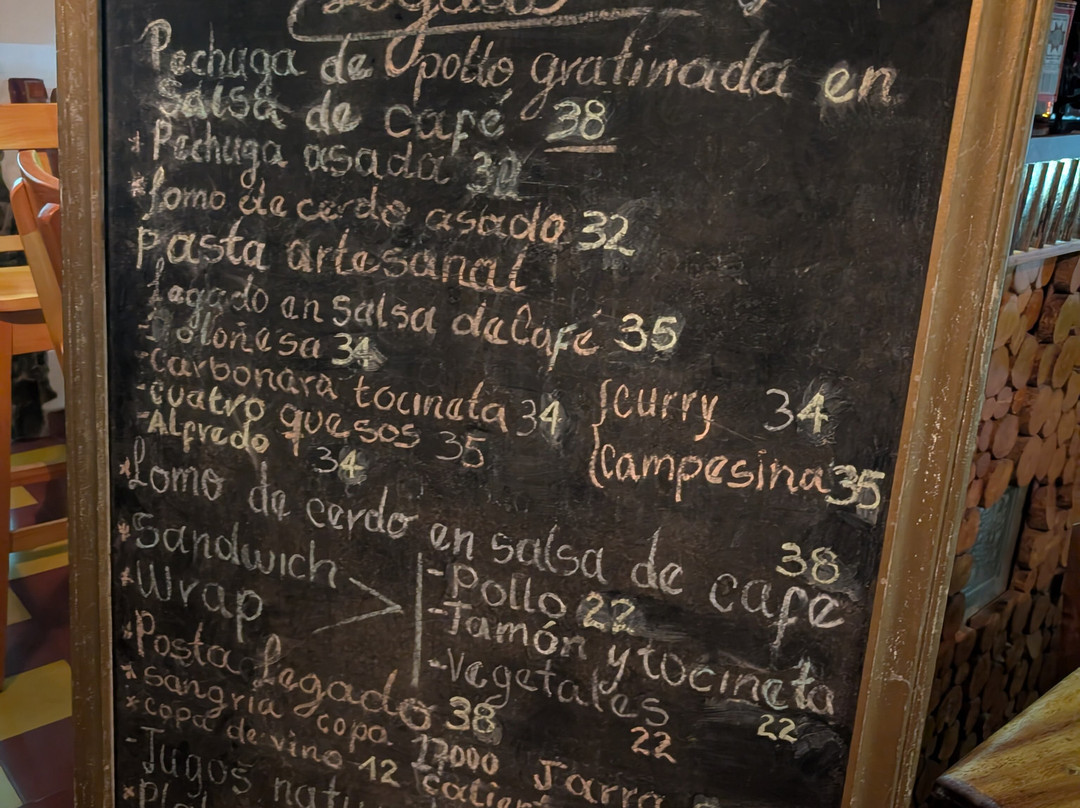 Legado
Pechuga de pollo gratinada en
Salsa de café 38
* Pechuga asada
* Lomo de cerdo asado 32
Pasta artesanal
Legado en salsa de Café 35
- Boloñesa 34
- Carbonara tocineta 34
- cuatro quesos 35
- Alfredo 34
curry 34
Campesina 35
* Lomo de cerdo en salsa de café 38
* Sandwich
* Wrap
- Pollo 22
- Jamón y tocineta 22
- Vegetales 22
* Posta Legado 38
* sangria copa 17000 Jarra
* copa de vino 12
- Jugos